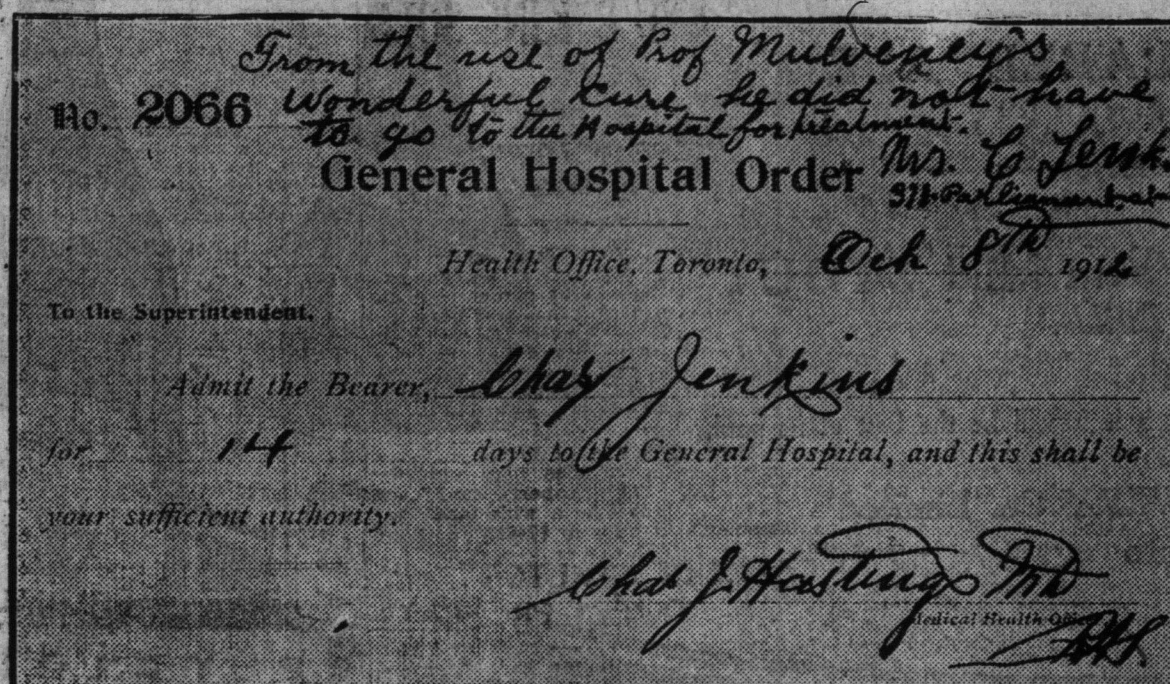 From the use of Prof Mulveney's
No. 2066 Wonderful Cure he did not have
to go to the Hospital for treatment.
General Hospital Order Mrs. C Jenk
Parliament
Health Office, Toronto, Oct 8th 1912
To the Superintendent.
Admit the Bearer, Chas Jenkins
for 14 days to the General Hospital, and this shall be
your sufficient authority.
Chas J. Hastings MD
Medical Health